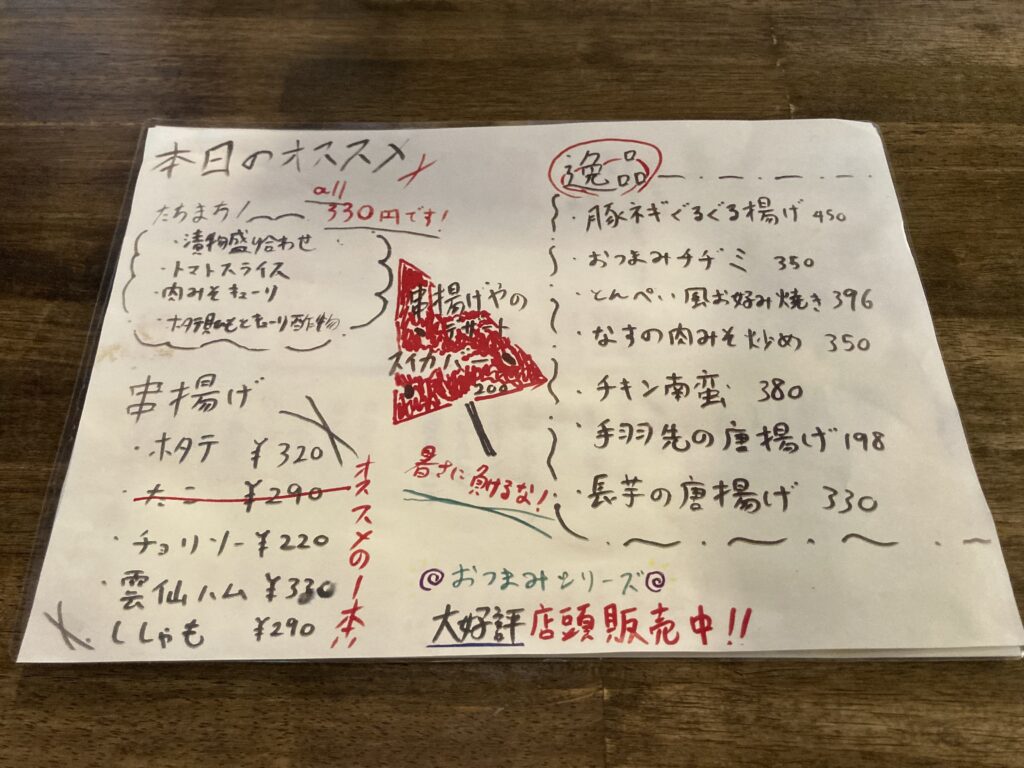 本日のオススメ
たちまち!
all
330円です!
・漬物盛り合わせ
・トマトスライス
・肉みそキューリ
・ホタテ貝ひもときゅーり酢物
串揚げ
・ホタテ ¥320
・たこ ¥290
・チョリソー ¥220
・雲仙ハム ¥330
・ししゃも ¥290
オススメの1本!!
串揚げやの
デザート
スイカバー
200
暑さに負けるな!
逸品
・豚ネギぐるぐる揚げ 450
・おつまみチヂミ 350
・とんぺい風お好み焼き 396
・なすの肉みそ炒め 350
・チキン南蛮 380
・手羽先の唐揚げ 198
・長芋の唐揚げ 330
@おつまみシリーズ@
大好評店頭販売中!!